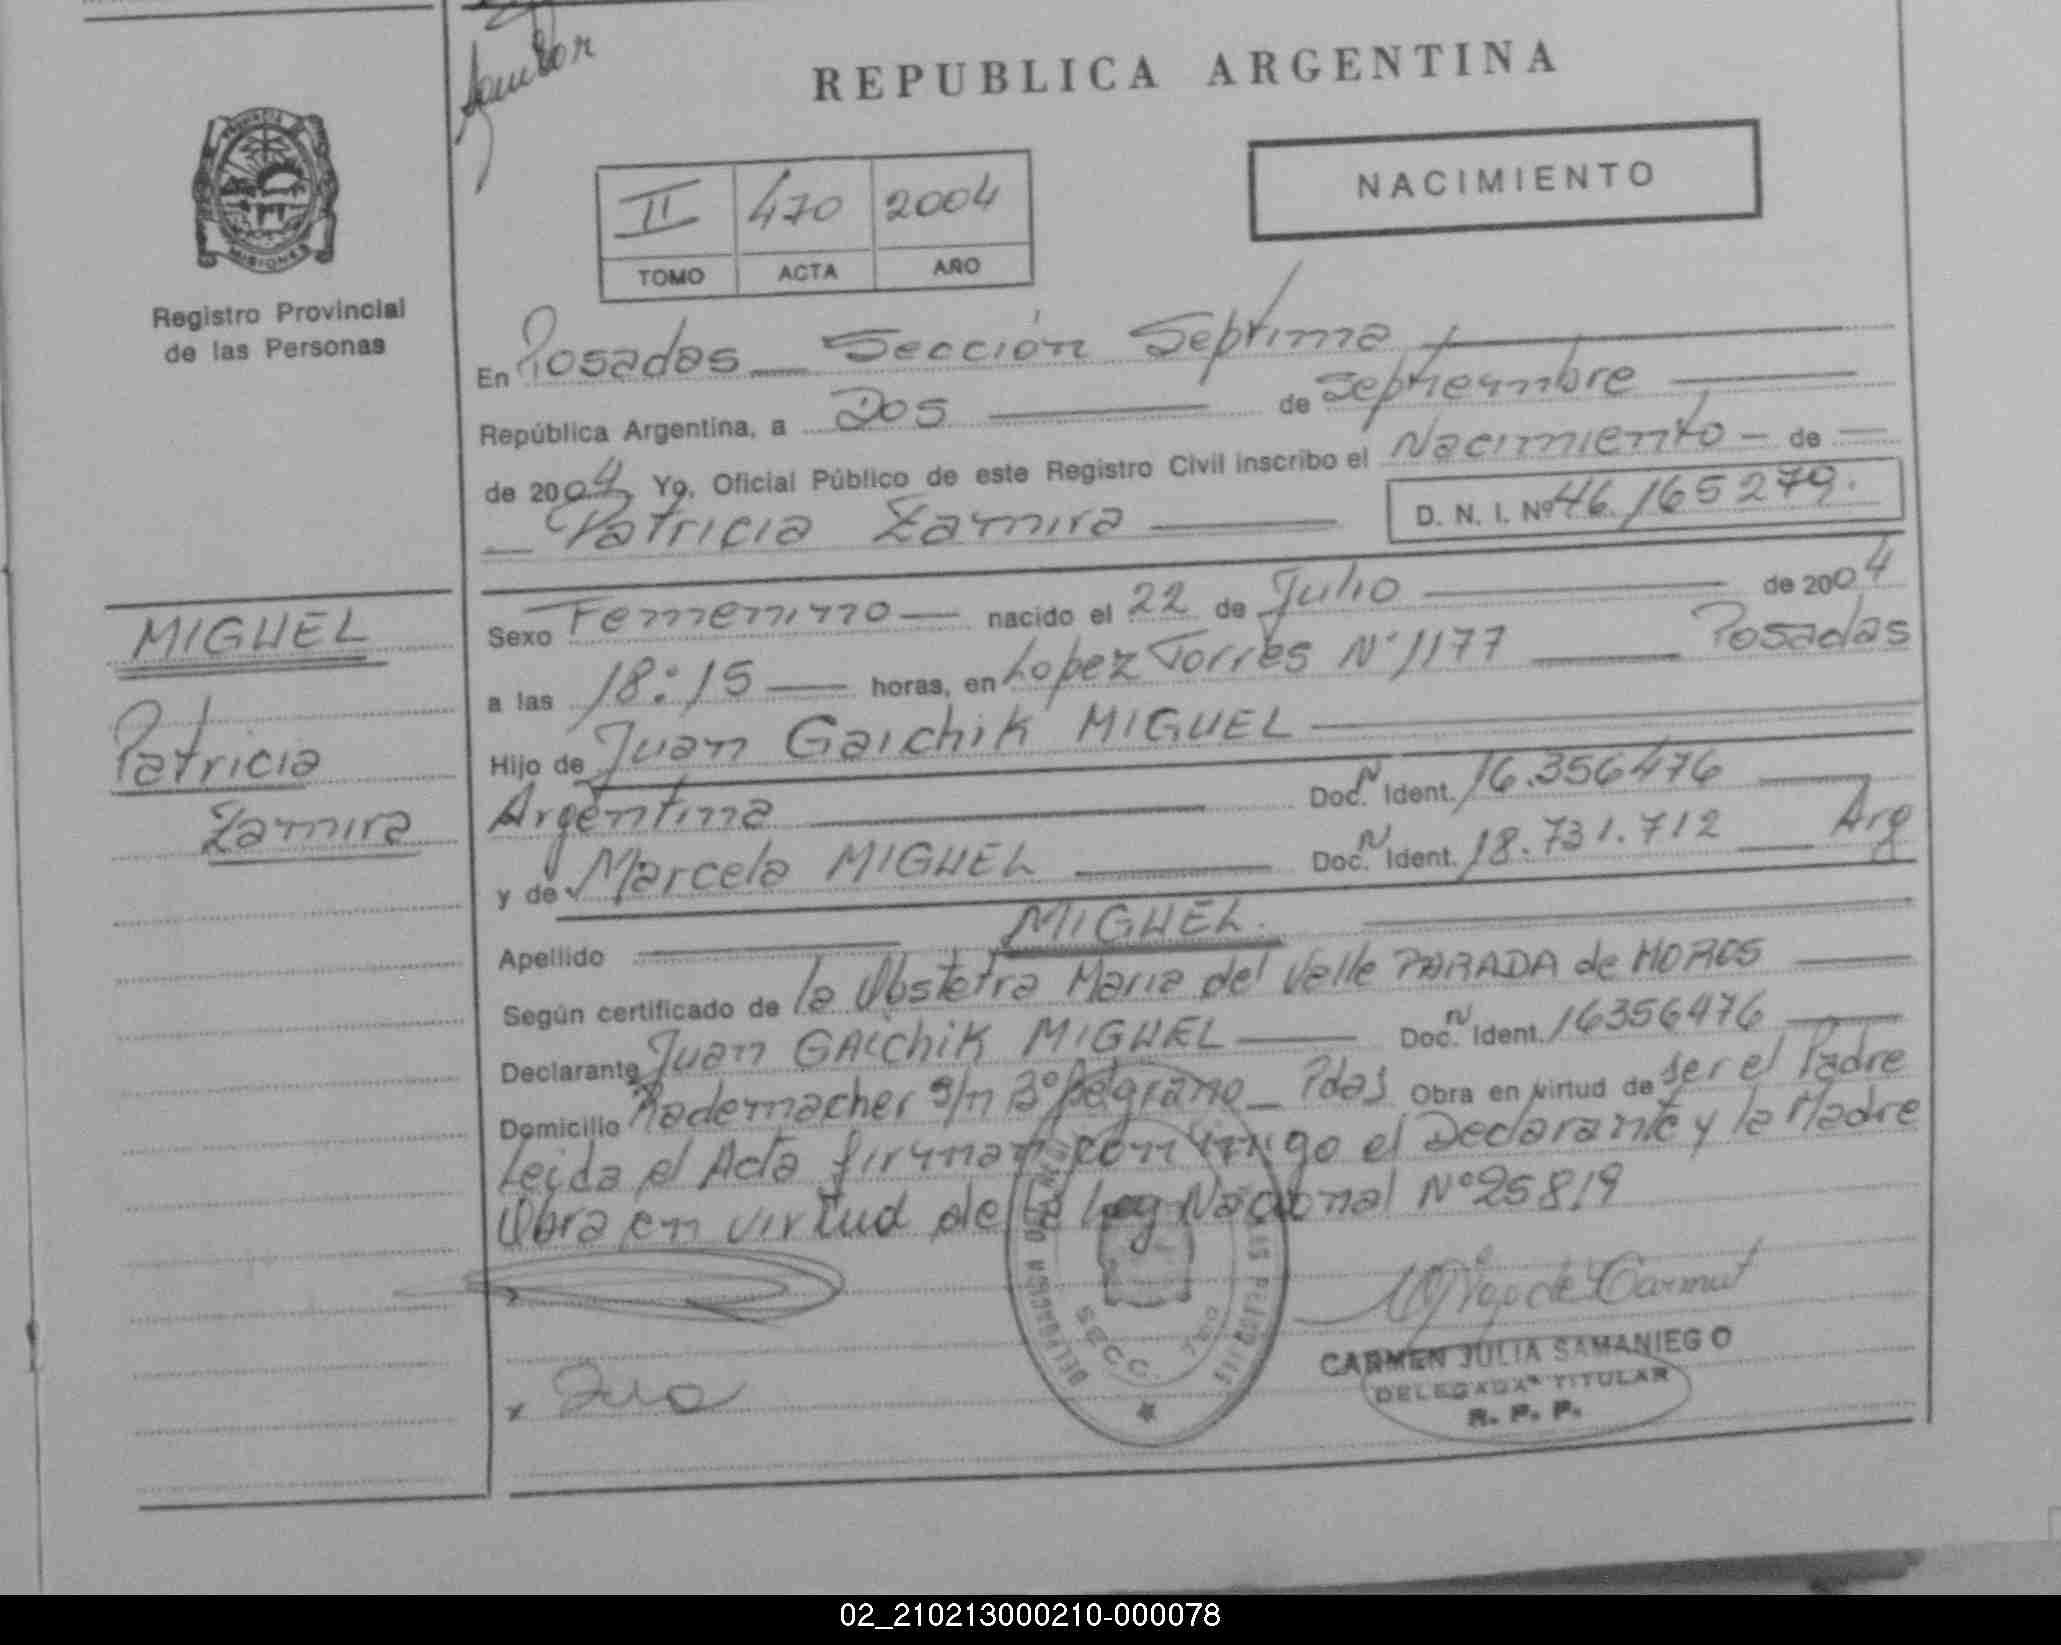 REPUBLICA ARGENTINA
NACIMIENTO
II 470 2004
TOMO ACTA AÑO
PROVINCIA DE
MISIONES
Registro Provincial
de las Personas
MIGUEL
Patricia
Zamira
En Posadas Sección Septima
República Argentina, a Dos de Septiembre
de 2004 Yo, Oficial Público de este Registro Civil inscribo el Nacimiento - de
Patricia Zamira D. N. I. Nº 46.165279.
Sexo Femenino nacido el 22 de Julio de 2004
a las 18:15 horas, en Lopez Torres Nº 1177 Posadas
Hijo de Juan Gaichik MIGUEL
Argentina Doc. N Ident. 16.356476
y de Marcela MIGUEL Doc. N Ident. 18.731.712 Arg
Apellido MIGUEL.
Según certificado de la Obstetra Maria del Valle PARADA de MOROS
Declarante Juan GAICHIK MIGUEL Doc. N Ident. 16356476
Domicilio Rademacher s/n Bº Belgrano - Pdas Obra en virtud de ser el Padre
Leida el Acta firman conmigo el Declarante y la Madre
Obra en virtud de la Ley Nacional Nº 25819
SECC. 7
CARMEN JULIA SAMANIEGO
DELEGADA TITULAR
R. P. P.
02_210213000210-000078